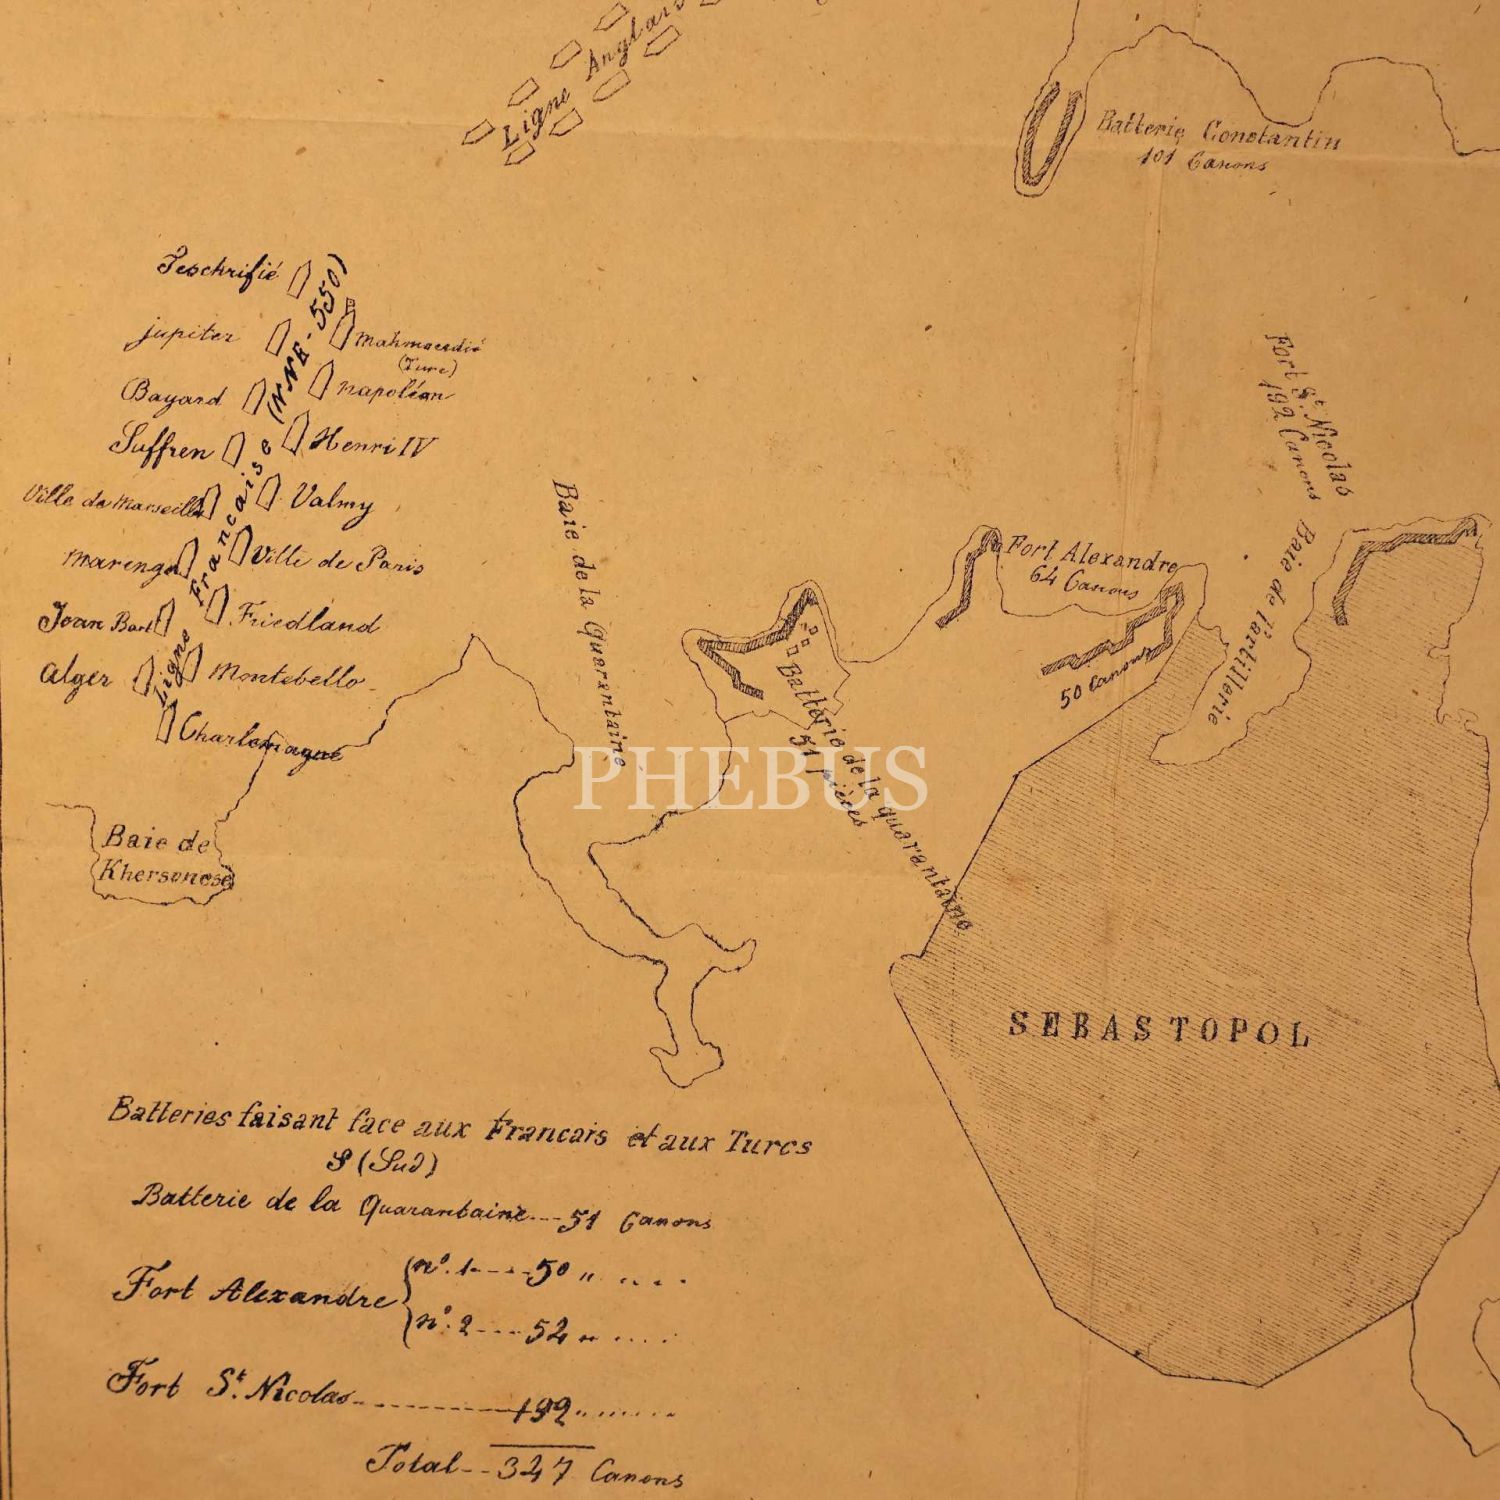 Ligne Anglais
Batterie Constantin
101 Canons
Teschrifié
Ligne Francaise (NNE. 550)
jupiter
Mahmoudié
(Turc)
Bayard
napoléon
Suffren
Henri IV
Ville de Marseille
Valmy
Marengo
Ville de Paris
Jean Bart
Friedland
Alger
Montebello
Charlemagne
Baie de
Khersonese
Baie de la Quarantaine
Batterie de la quarantaine
51 pièces
Fort Alexandre
64 Canons
50 Canons
Fort St. Nicolas
192 Canons
Baie de l'artillerie
PHEBUS
SEBASTOPOL
Batteries faisant face aux Francais et aux Turcs
S (Sud)
Batterie de la Quarantaine---51 Canons
Fort Alexandre
n°. 1-----50 " .. . .
n°. 2----52 " . . . .
Fort St. Nicolas------------192 " . . . . .
Total--347 Canons